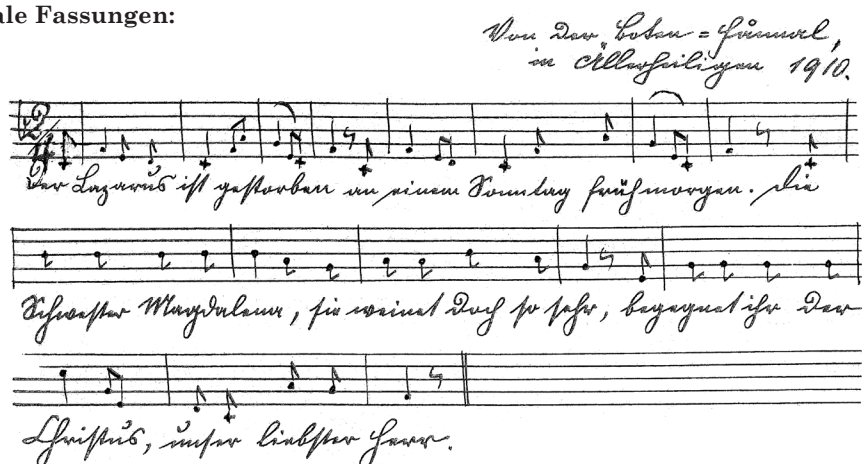 ale Fassungen:
Von der „Boten=Hånnal,
in Allerheiligen 1910.
2/4
Der Lazarus ist gestorben an einem Sonntag früh morgen. Die
Schwester Magdalena, sie weinet doch so sehr, begegnet ihr der
Christus, unser liebster Herr.